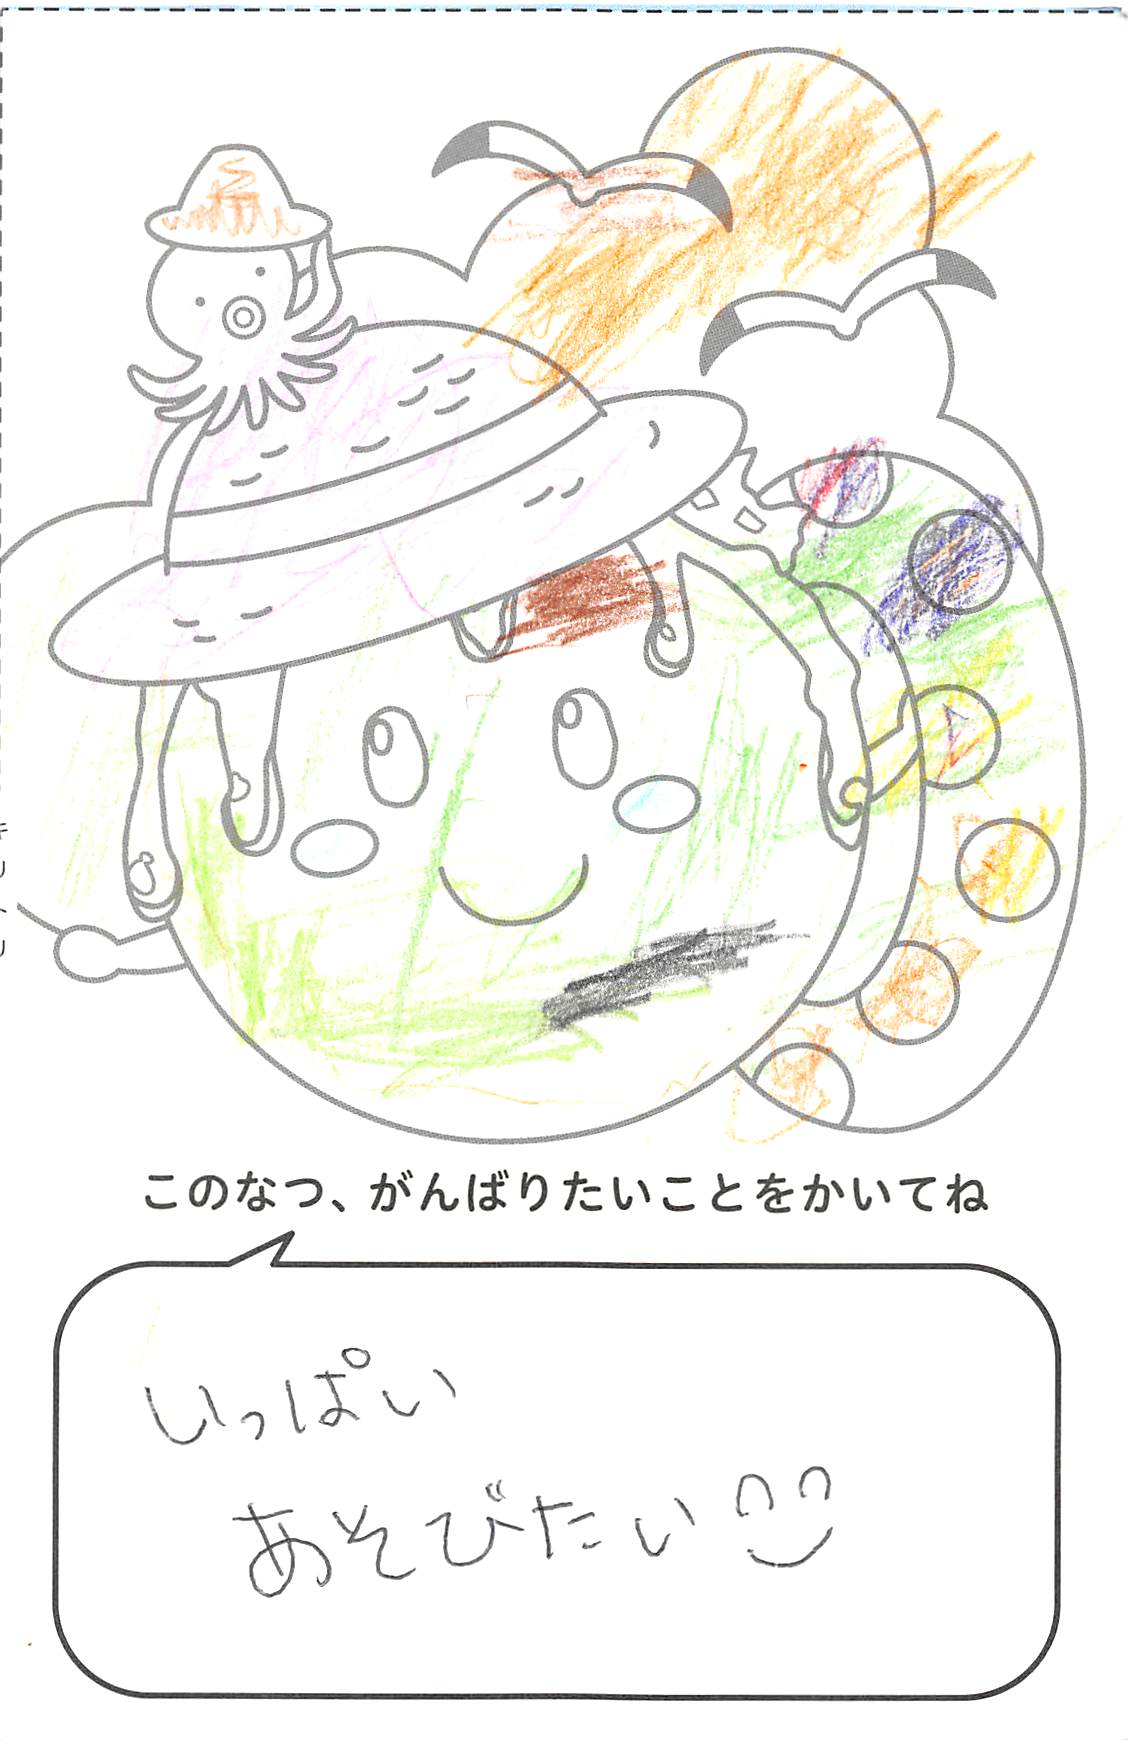 このなつ、がんばりたいことをかいてね
いっぱい
あそびたい